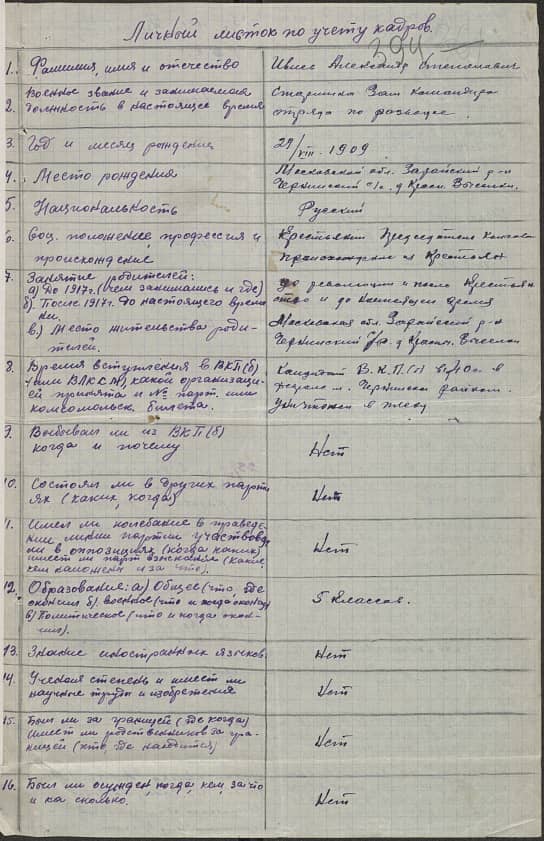 Личный листок по учету кадров.
394
1. Фамилия, имя и отчество
Александр Степанович
2. Военное звание и занимаемая
должность в настоящее время
Старшина Зам. командира
отряда по разведке.
3. Год и месяц рождения
/VIII. 1909
4. Место рождения
Московской обл. Зарайский р-н
с/с. д. Красн.
5. Национальность
Русский
6. Соц. положение, профессия и
происхождение
Крестьянин Председатель колхоза
Происхождение из крестьян
7. Занятие родителей:
а) До 1917г. (чем занимались и где)
б) После 1917г. до настоящего време
ни.
в.) Место жительства роди-
телей.
до революции и после крестьян
ство и до настоящего время
Московская обл. Зарайский р-н
с/с. д. Красн.
8. Время вступления в ВКП(б)
или ВЛКСМ, какой организаци-
ей принят и № парт. или
комсомольск. билета.
Кандидат В.К.П.(б) 40г. в
райком.
уничтожен в плену
9. Выбывал ли из ВКП(б)
когда и почему
Нет
10. Состоял ли в других парти
ях (каких, когда)
Нет
11. Имел ли колебание в проведе-
нии линии партии участвовал
ли в оппозициях (когда каких)
имеет ли парт взыскания (какие
кем наложены и за что).
Нет
12. Образование: а) Общее (что, где
окончил б). Военное (что и когда окончил)
в) Политическое (что и когда окон-
чил).
5 классов.
13. Знание иностранных языков.
Нет
14. Ученая степень и имеет ли
научные труды и изобретения
Нет
15. Был ли за границей (где когда)
имеет ли родственников за гра-
ницей (кто, где находится)
Нет
16. Был ли осужден, когда, кем, за что
и на сколько.
Нет